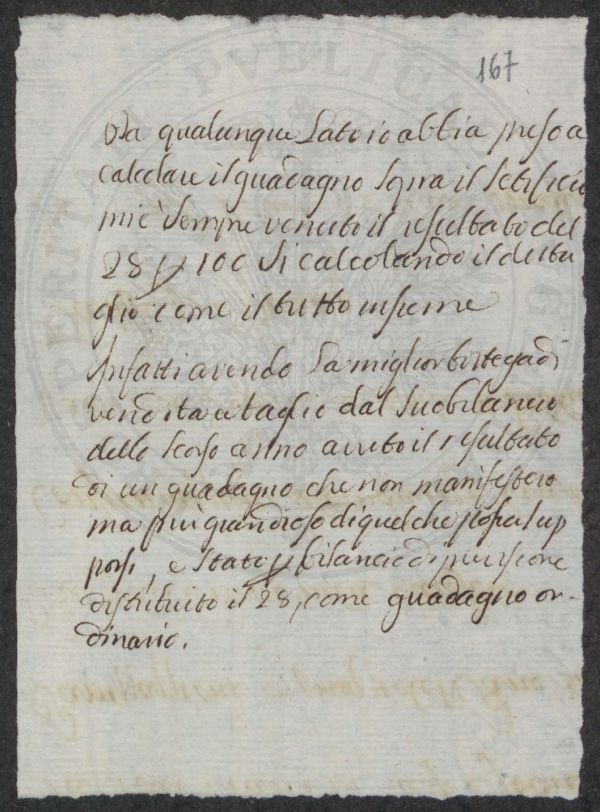 167
Da qualunque Lato io abbia preso a
calcolare il guadagno sopra il Setificio
mi è sempre venuto il resultato del
28 p 100 sì calcolando il detta
glio come il tutto insieme
Infatti avendo La miglior bottega di
vendita a taglio dal Suo bilancio
dello Scorso anno avuto il resultato
di un guadagno che non manifesterò
ma più grandioso di quel che possa sup
porsi, è Stato p bilancio di
distribuito il 28, come guadagno or-
dinario.